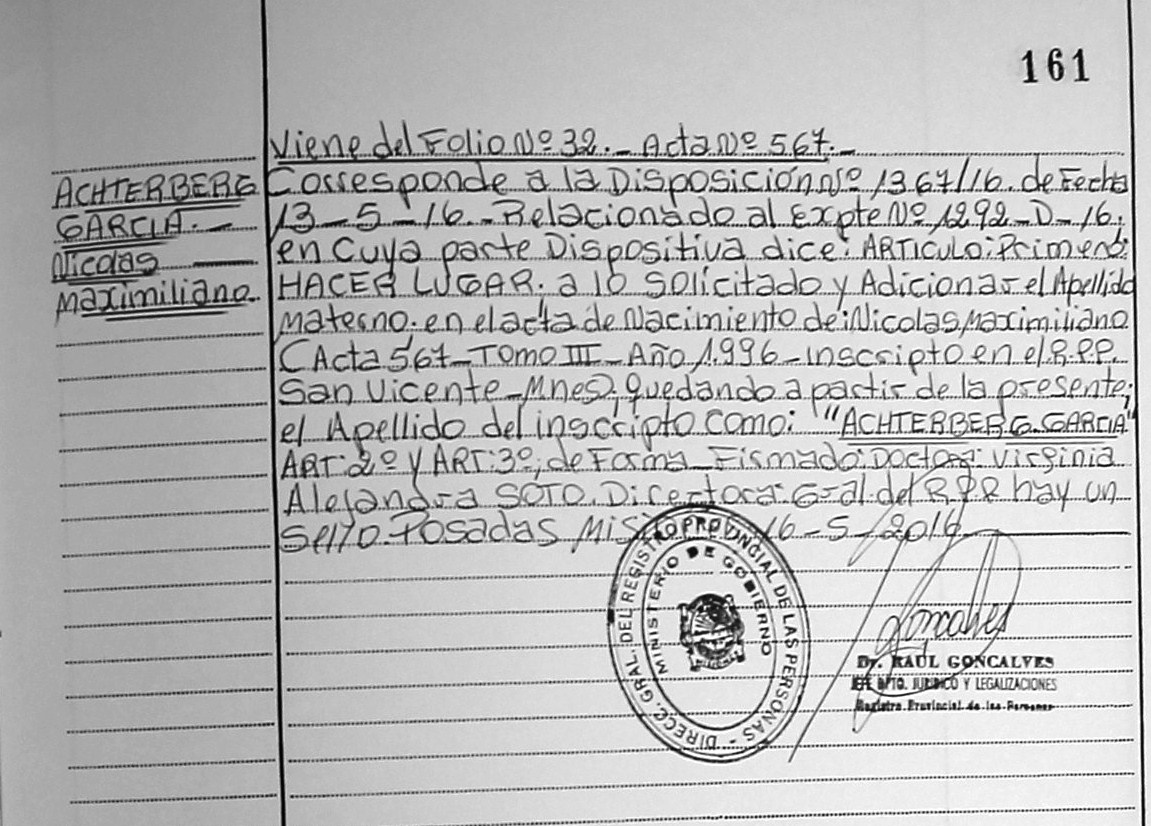 161
Viene del Folio Nº 32._ Acta Nº 567._
ACHTERBERG
GARCIA._
Nicolas
Maximiliano.
Corresponde a la Disposición Nº 1367/16. de Fecha
13-5-16.- Relacionado al Expte Nº 1292-D-16.
en Cuya parte Dispositiva dice: ARTICULO: Primero:
HACER LUGAR. a lo Solicitado y Adicionar el Apellido
Materno. en el acta de Nacimiento de: Nicolas Maximiliano
(Acta 567-TOMO III-Año 1.996-Inscripto en el R.P.P.
San Vicente-Mnes). quedando a partir de la presente;
el Apellido del inscripto como: "ACHTERBERG.GARCIA"
ART: 2º y ART: 3º, de Forma-Firmado: Doctora: Virginia
Alejandra SOTO. Directora: Gral. del R.P.P. hay un
Sello. Posadas 16-5-2016
DIRECC. GRAL. DEL REGISTRO PROVINCIAL DE LAS PERSONAS -
MINISTERIO DE GOBIERNO
Goncalves
Dr. RAUL GONCALVES
JEFE DPTO. JURIDICO Y LEGALIZACIONES
Registro Provincial de las Personas